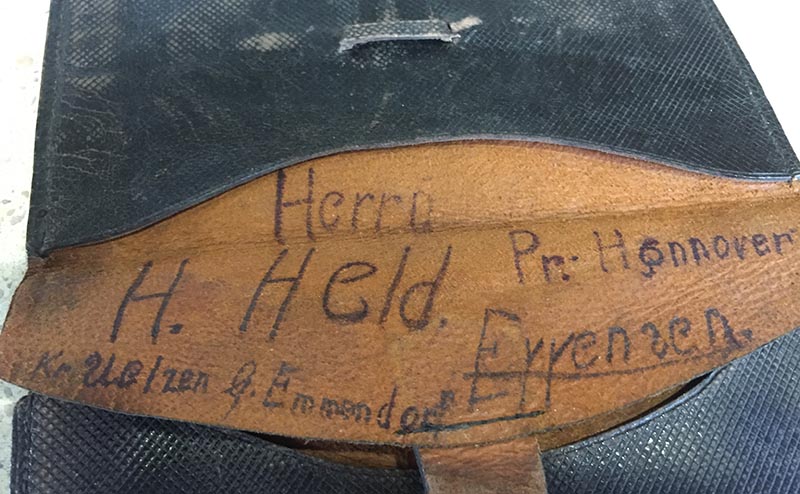 Herrn
H. Held.
Pr. Hannover
Eppensen.
Kr. Uelzen Emmendorf